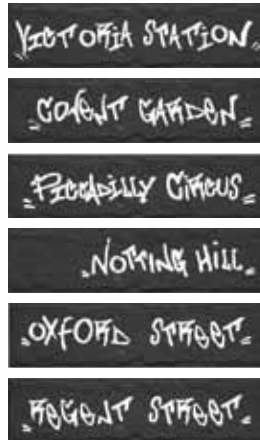 VICTORIA STATION
COVENT GARDEN
PICCADILLY CIRCUS
NOTTING HILL
OXFORD STREET
REGENT STREET